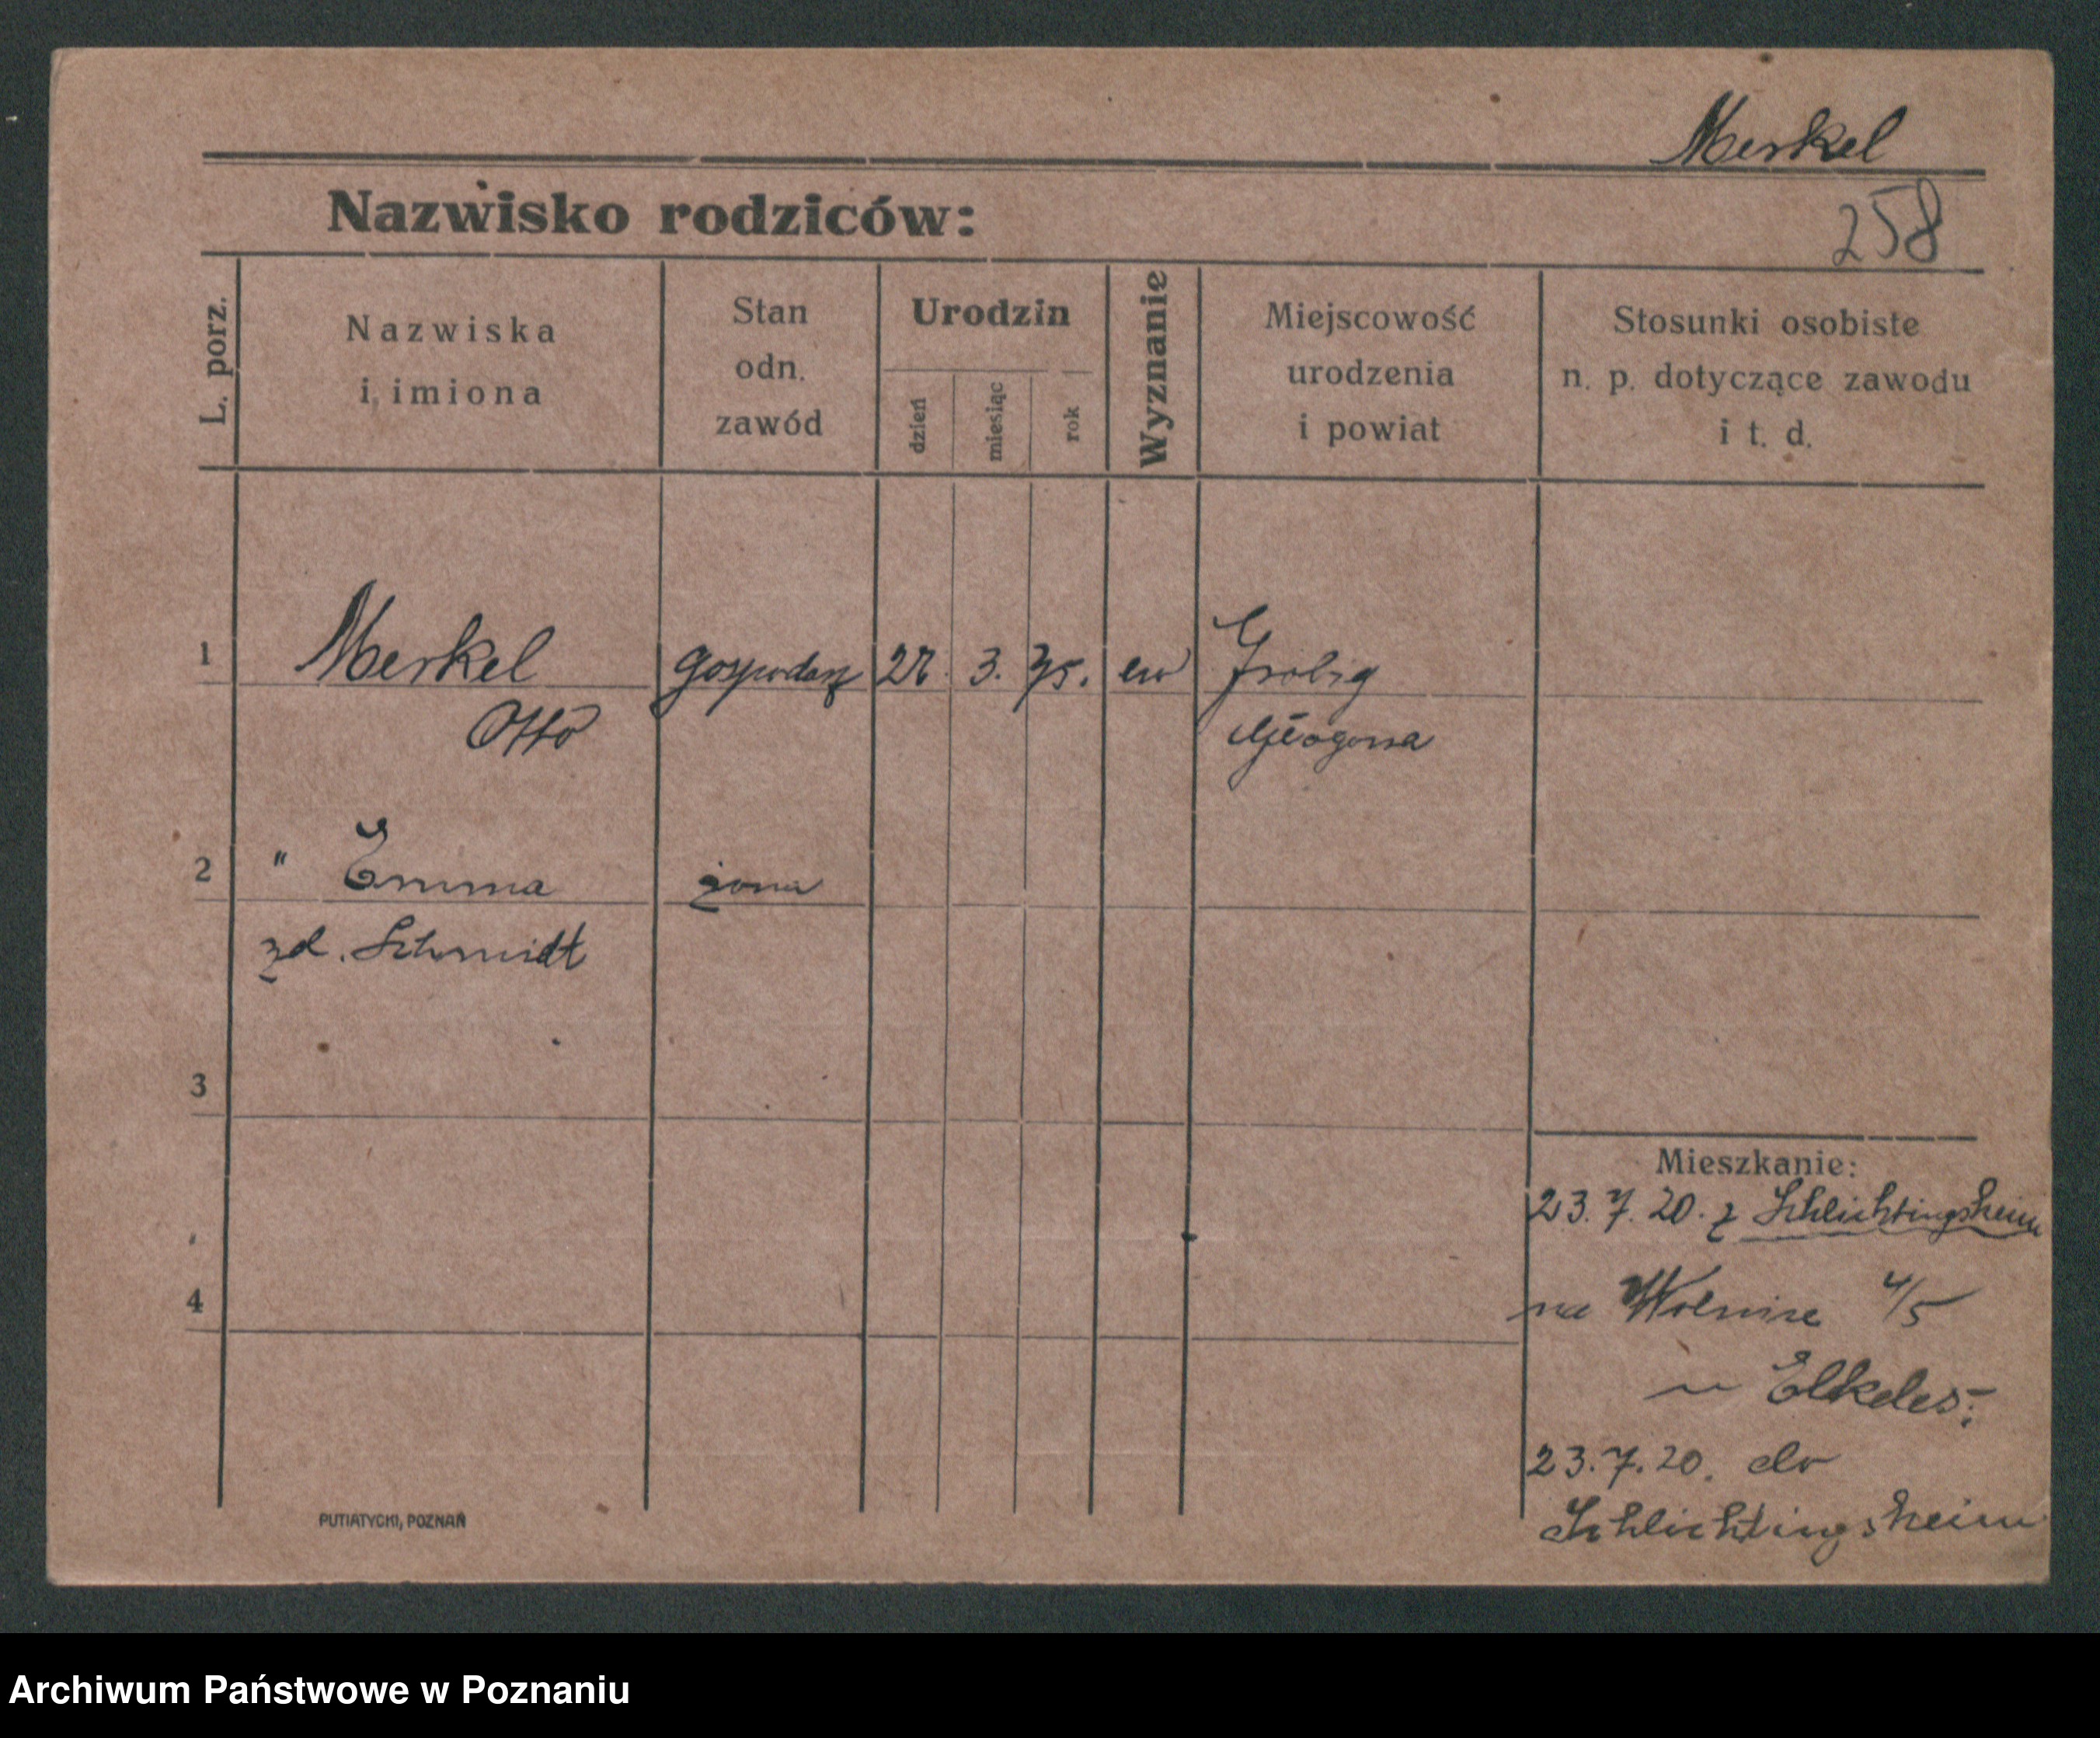 Merkel
Nazwisko rodziców:
258
L. porz.
Nazwiska
i imiona
Stan
odn.
zawód
Urodzin
dzień
miesiąc
rok
Wyznanie
Miejscowość
urodzenia
i powiat
Stosunki osobiste
n. p. dotyczące zawodu
i t. d.
1 Merkel gospodarz 3. 75. ew
Otto
2 " Emma żona
zd. Schmidt
3
4
Mieszkanie:
23.7.20. z Schlichtingsheim
na 4/5
u Elkeles:
23.7.20. do
Schlichtingsheim
PUTIATYCKI, POZNAŃ
Archiwum Państwowe w Poznaniu